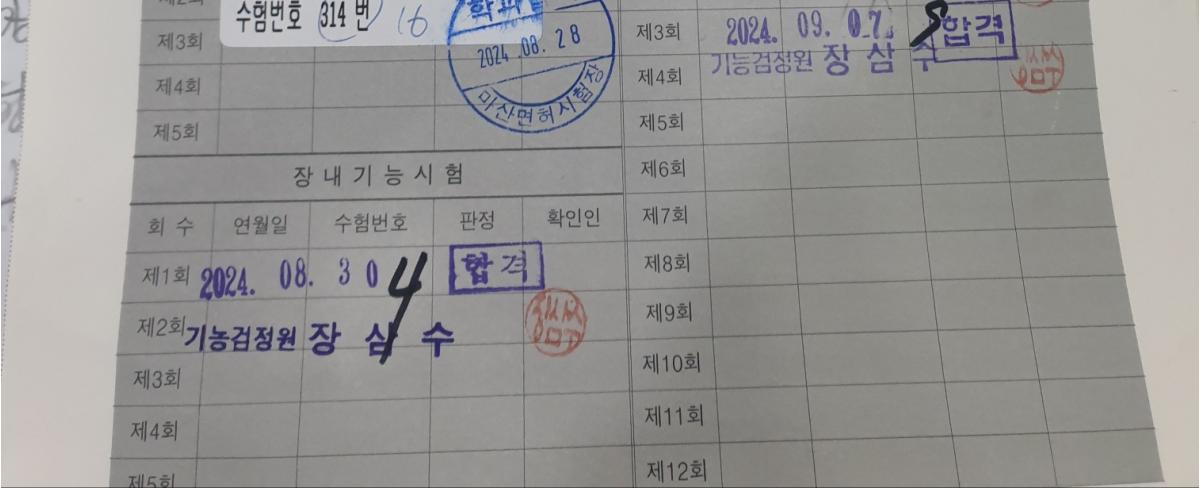 수험번호 314 번 16
제3회
제4회
제5회
2024.08.28
마산면허시험장
장내기능시험
회 수 연월일 수험번호 판정 확인인
제1회 2024. 08. 30 4 합격
제2회 기능검정원 장 삼 수
제3회
제4회
제5회
제3회 2024. 09. 07. 합격
제4회 기능검정원 장 삼 수
제5회
제6회
제7회
제8회
제9회
제10회
제11회
제12회